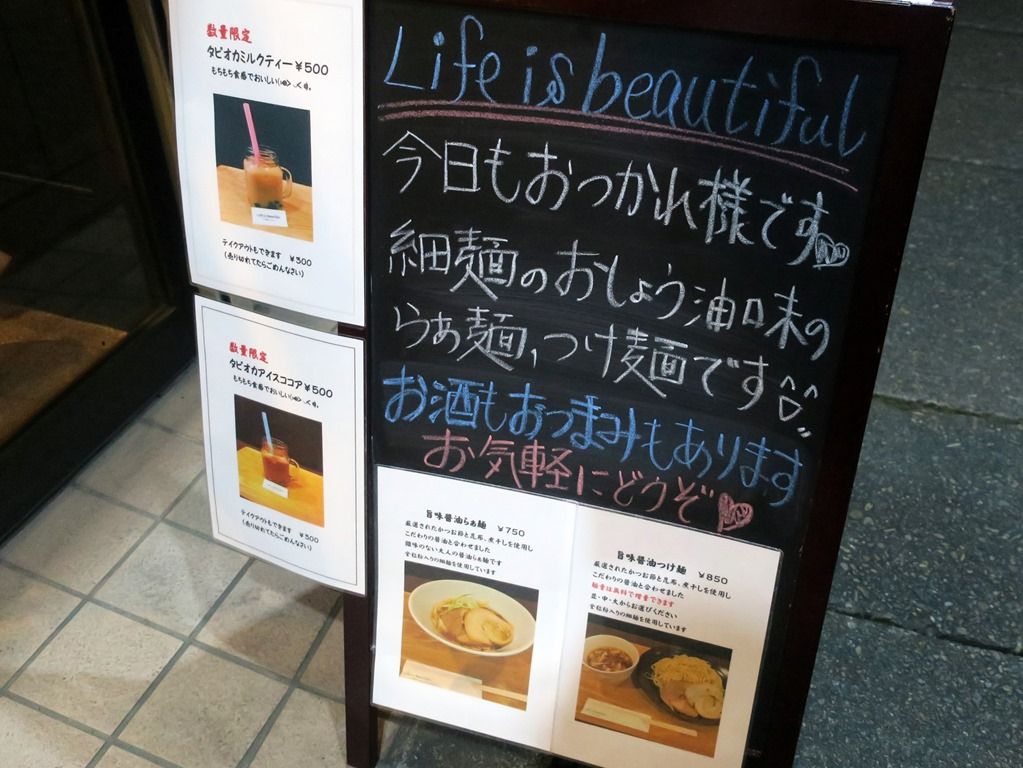 数量限定
タピオカミルクティー ¥500
もちもち食感でおいしい
テイクアウトもできます ¥500
(売り切れてたらごめんなさい)
数量限定
タピオカアイスココア ¥500
もちもち食感でおいしい
テイクアウトもできます ¥500
(売り切れてたらごめんなさい)
Life is beautiful
今日もおつかれ様です
細麺のおしょう油味の
らぁ麺,つけ麺です
お酒もおつまみもあります
お気軽にどうぞ
旨味醤油らぁ麺 ¥750
厳選されたかつお節と昆布、煮干しを使用し
こだわりの醤油と合わせました
雑味のない大人の醤油らぁ麺です
全粒粉入りの細麺を使用しています
旨味醤油つけ麺 ¥850
厳選されたかつお節と昆布、煮干しを使用し
こだわりの醤油と合わせました
麺量は無料で増量できます
並・中・大からお選びください
全粒粉入りの細麺を使用しています